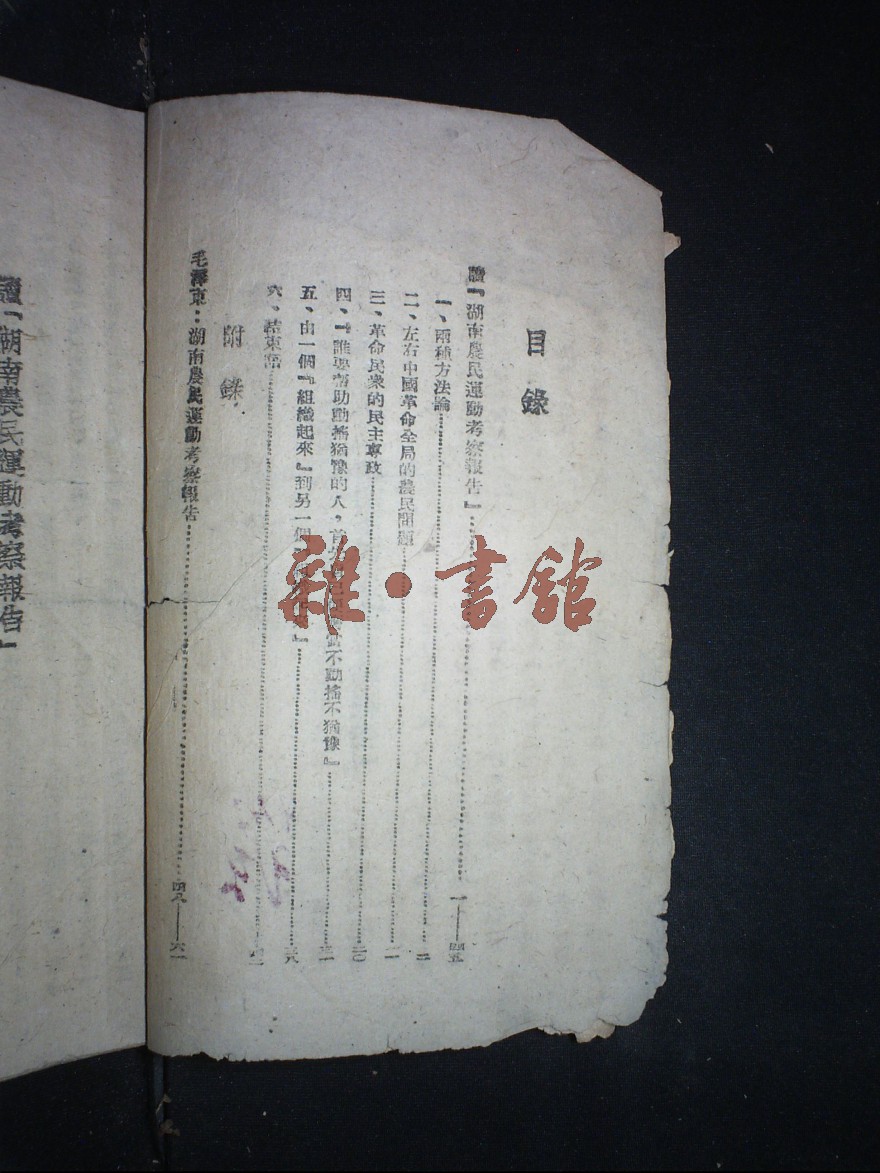 目錄
讀『湖南農民運動考察報告』 一——四五
一、兩種方法論
二、左右中國革命全局的農民問題 一一
三、革命民衆的民主專政 二〇
四、『誰要幫助動搖猶豫的人，首 不動搖不猶豫』
五、由一個『組織起來』到另一個 』
六、結束語
附錄
毛澤東：湖南農民運動考察報告 四八——六一
讀『湖南農民運動考察報告』
雜·書館